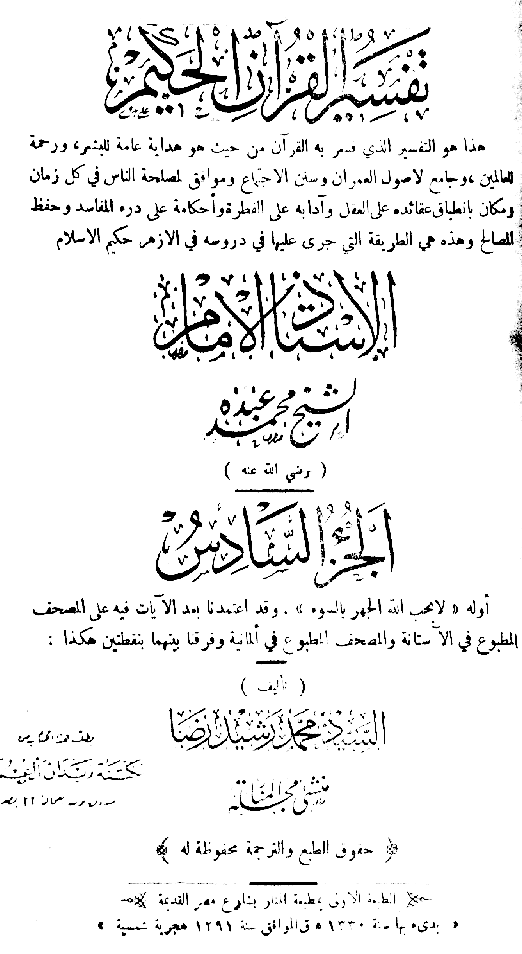 تفسير القرآن الحكيم
هذا هو التفسير الذي فسر به القرآن من حيث هو هداية عامة للبشر، ورحمة
للعالمين، وجامع لاصول العمران وسنن الاجتماع وموافق لمصلحة الناس في كل زمان
ومكان بانطباق عقائده على العقل وآدابه على الفطرة وأحكامه على درء المفاسد وحفظ
المصالح وهذه هي الطريقة التي جرى عليها في دروسه في الازهر حكيم الاسلام
الاستاذ الامام
الشيخ محمد عبده
( رضي الله عنه )
الجزء السادس
أوله « لا يحب الله الجهر بالسوء » . وقد اعتمدنا بعد الآيات فيه على المصحف
المطبوع في الآستانة والمصحف المطبوع في ألمانية وفرقنا بينهما بنقطتين هكذا :
( تأليف )
السيد محمد رشيد رضا
منشئ مجلة المنار
﴿ حقوق الطبع والترجمة محفوظة له ﴾
الطبعة الاولى بمطبعة المنار بشارع مصر القديمة
« بدىء بها سنة ١٣٣٠ ه ق الموافق سنة ١٢٩١ هجرية شمسية »